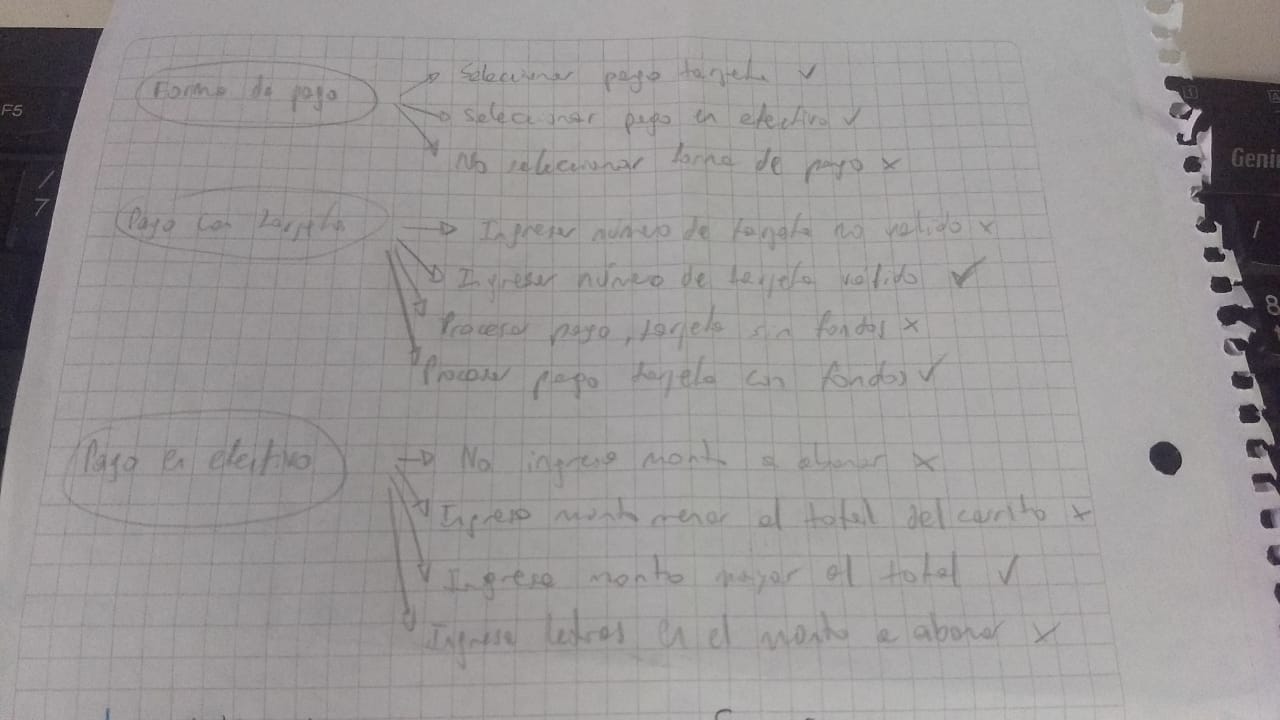 Forma de pago
Seleccionar pago tarjeta ✓
Seleccionar pago en efectivo ✓
No seleccionar forma de pago x
Pago con tarjeta
Ingresar número de tarjeta no valido x
Ingresar número de tarjeta válido ✓
Procesar pago, tarjeta sin fondos x
Procesar pago tarjeta con fondos ✓
Pago en efectivo
No ingresa monto a abonar x
Ingresa monto menor al total del carrito x
Ingresa monto mayor al total ✓
Ingresa letras en el monto a abonar x
F5
/
7
Geni
/
8